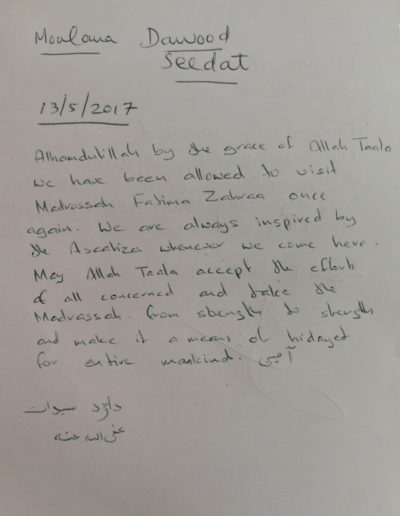 Moulana Dawood
Seedat
13/5/2017
Alhamdulillah by the grace of Allah Taala
we have been allowed to visit
Madrassah Fatima Zahraa once
again. We are always inspired by
the Asaatiza whenever we come here.
May Allah Taala accept the efforts
of all concerned and take the
Madrassah from strength to strength
and make it a means of hidayet
for entire mankind. آمین
داؤد سیدات
عفی اللہ عنہ